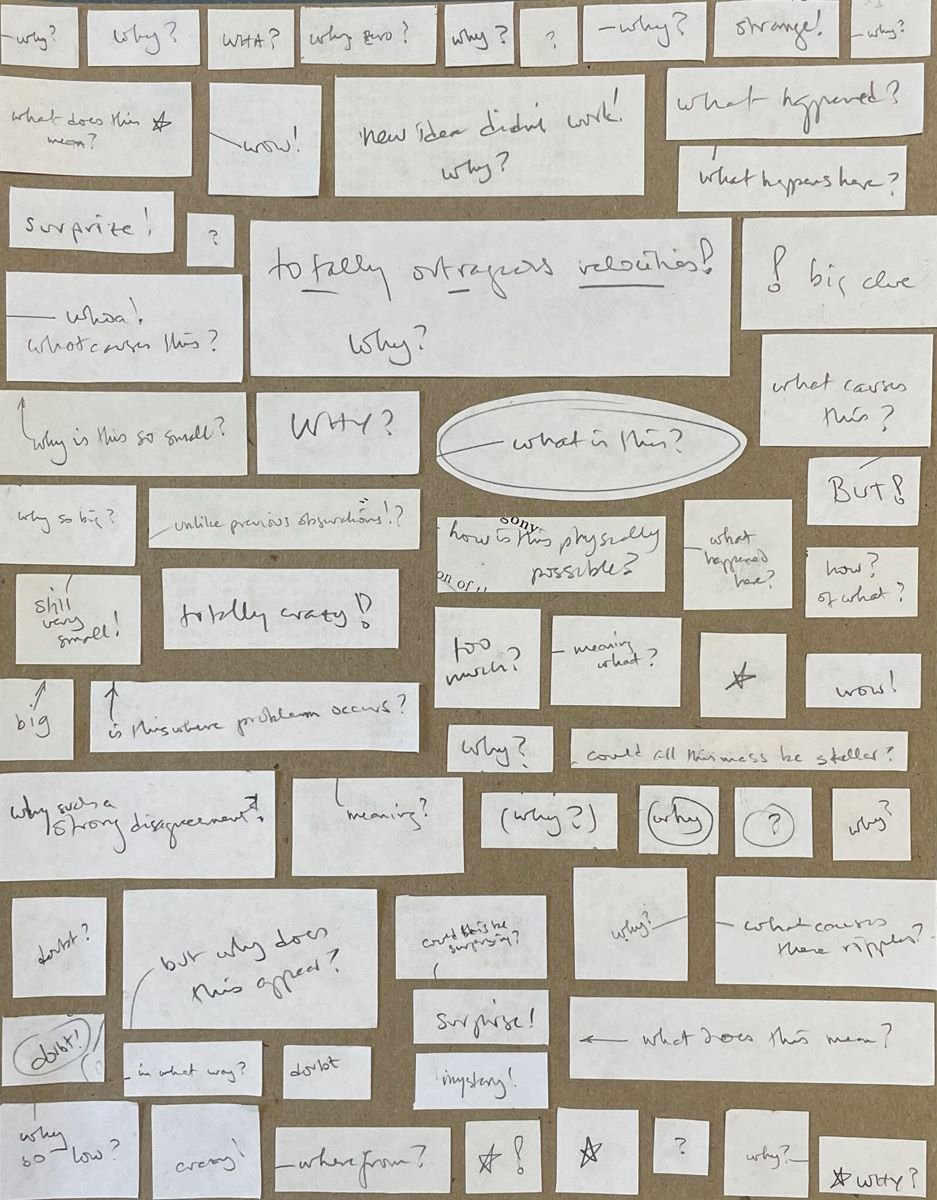 – why?
why?
WHA?
why zero?
why?
?
– why?
strange!
– why?
what does this ☆
mean?
wow!
new idea didn't work!
why?
what happened?
what happens here?
surprize!
?
totally outrageous velocities!
why?
! big clue
whoa!
what causes this?
what causes
this?
why is this so small?
WHY?
what is this?
BUT!
why so big?
unlike previous observations!?
how is this physically
possible?
what
happened
here?
how?
of what?
still
very
small!
totally crazy!?
too
much?
– meaning
what?
☆
wow!
big
is this where problem occurs?
why?
could all this mass be stellar?
why such a
strong disagreement?
meaning?
(why?)
why
?
why?
doubt?
but why does
this appear?
could this be
surprising?
why?
what causes
these ripples?
doubt!
surprise!
← what does this mean?
– in what way?
doubt
mystery!
why
so low?
crazy!
– where from?
☆ !
☆
?
why?
☆ WHY?